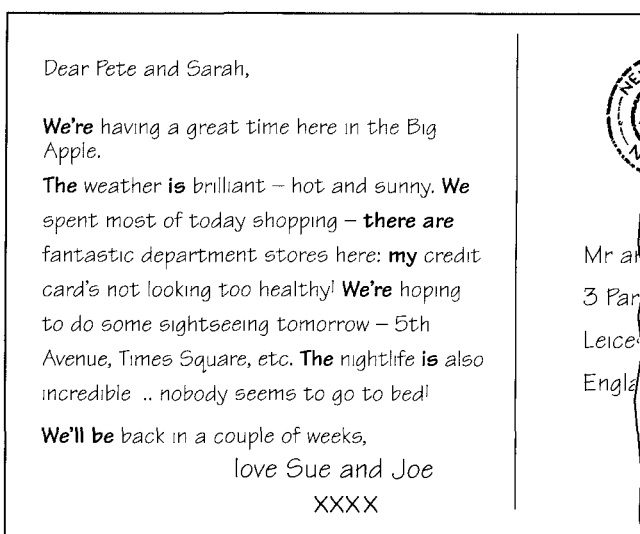 Dear Pete and Sarah,
We're having a great time here in the Big
Apple.
The weather is brilliant – hot and sunny. We
spent most of today shopping – there are
fantastic department stores here: my credit
card's not looking too healthy! We're hoping
to do some sightseeing tomorrow – 5th
Avenue, Times Square, etc. The nightlife is also
incredible .. nobody seems to go to bed!
We'll be back in a couple of weeks,
love Sue and Joe
XXXX
Mr
3